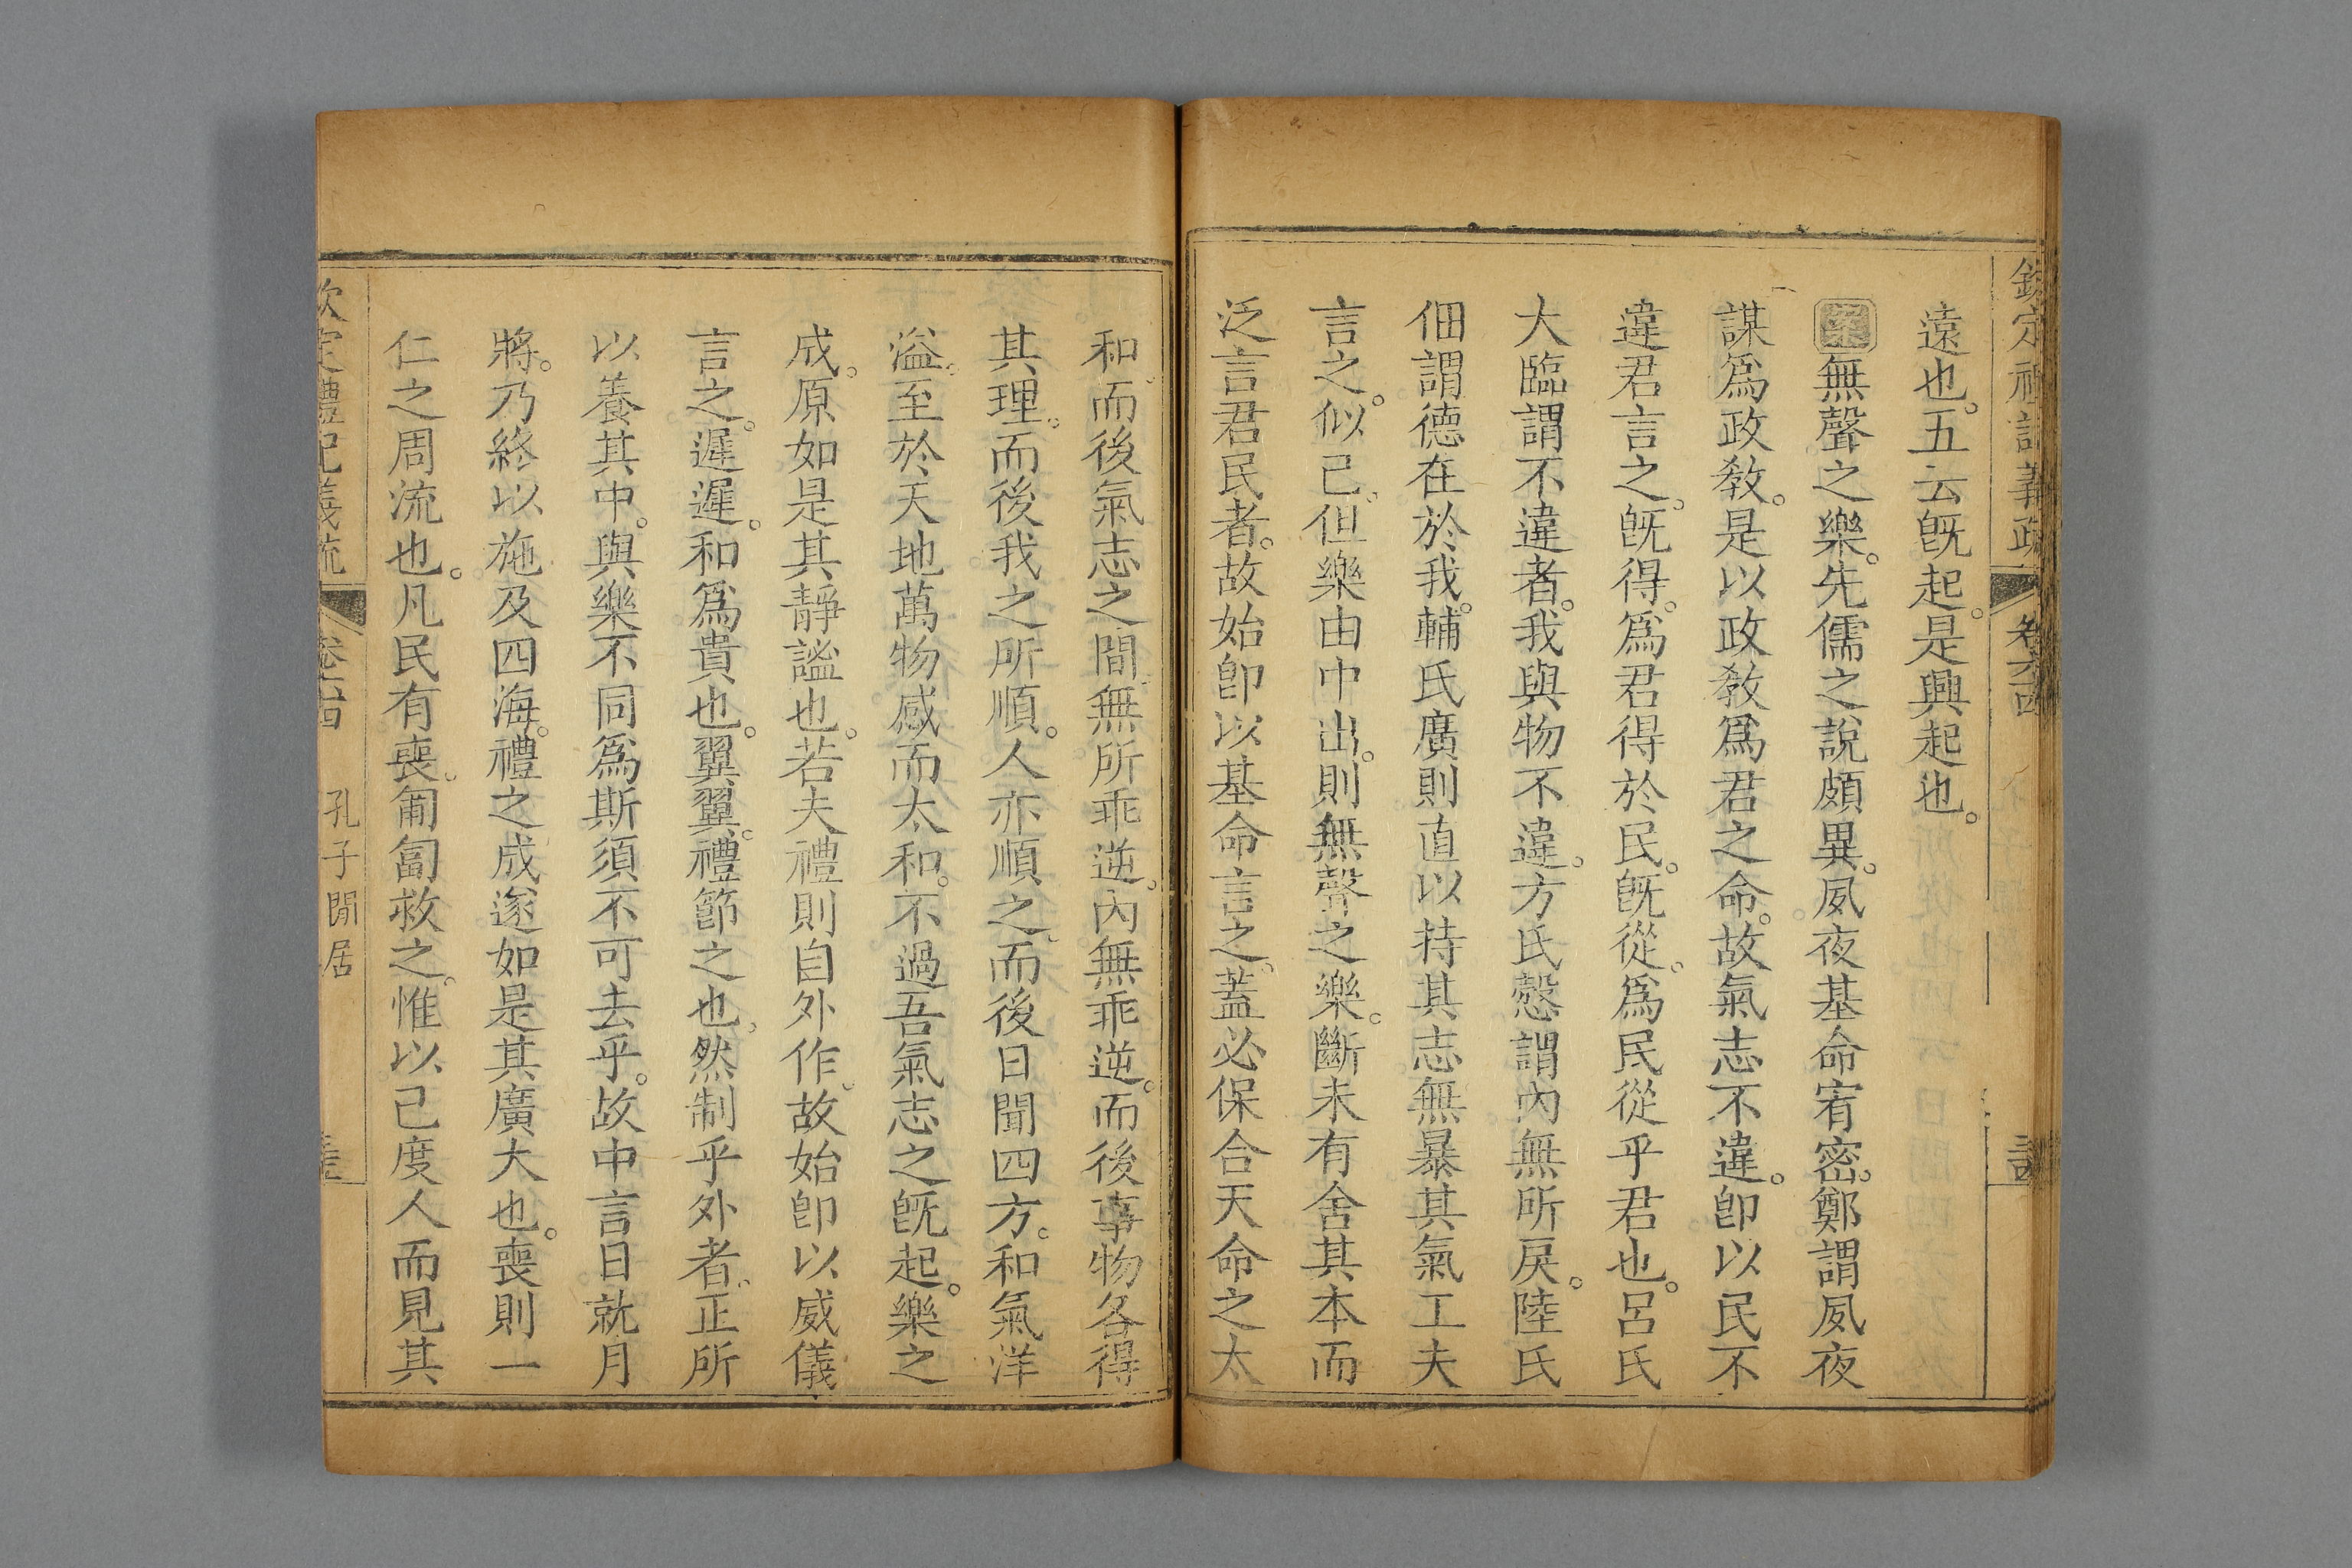 遠也。五云旣起。是興起也。
案無聲之樂。先儒之說頗異。夙夜基命宥密。鄭謂夙夜
謀爲政敎。是以政敎爲君之命。故氣志不違。卽以民不
違君言之。旣得。爲君得於民。旣從。爲民從乎君也。呂氏
大臨謂不違者。我與物不違。方氏慤謂內無所戾。陸氏
佃謂德在於我。輔氏廣則直以持其志無暴其氣工夫
言之。似已。但樂由中出。則無聲之樂。斷未有舍其本而
泛言君民者。故始卽以基命言之。蓋必保合天命之太
和。而後氣志之間。無所乖逆。內無乖逆。而後事物各得
其理。而後我之所順。人亦順之。而後日聞四方。和氣洋
溢。至於天地萬物感而太和。不過吾氣志之旣起。樂之
成。原如是其靜謐也。若夫禮則自外作。故始卽以威儀
言之。遲遲。和爲貴也。翼翼。禮節之也。然制乎外者。正所
以養其中。與樂不同爲斯須不可去乎。故中言日就月
將。乃終以施及四海。禮之成遂如是其廣大也。喪則一
仁之周流也。凡民有喪。匍匐救之。惟以己度人而見其
欽定禮記義疏 卷六十四 孔子閒居